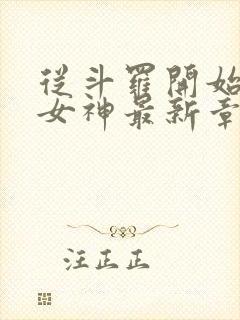 從斗羅開始
女神最新章
汪正正